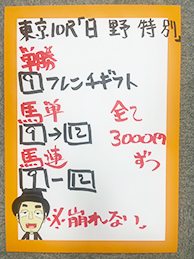 東京10R「日野特別」
単勝
9 フレンチギフト
馬単 全て
9→12 3000円
馬連 ずつ
9-12
※崩れない。